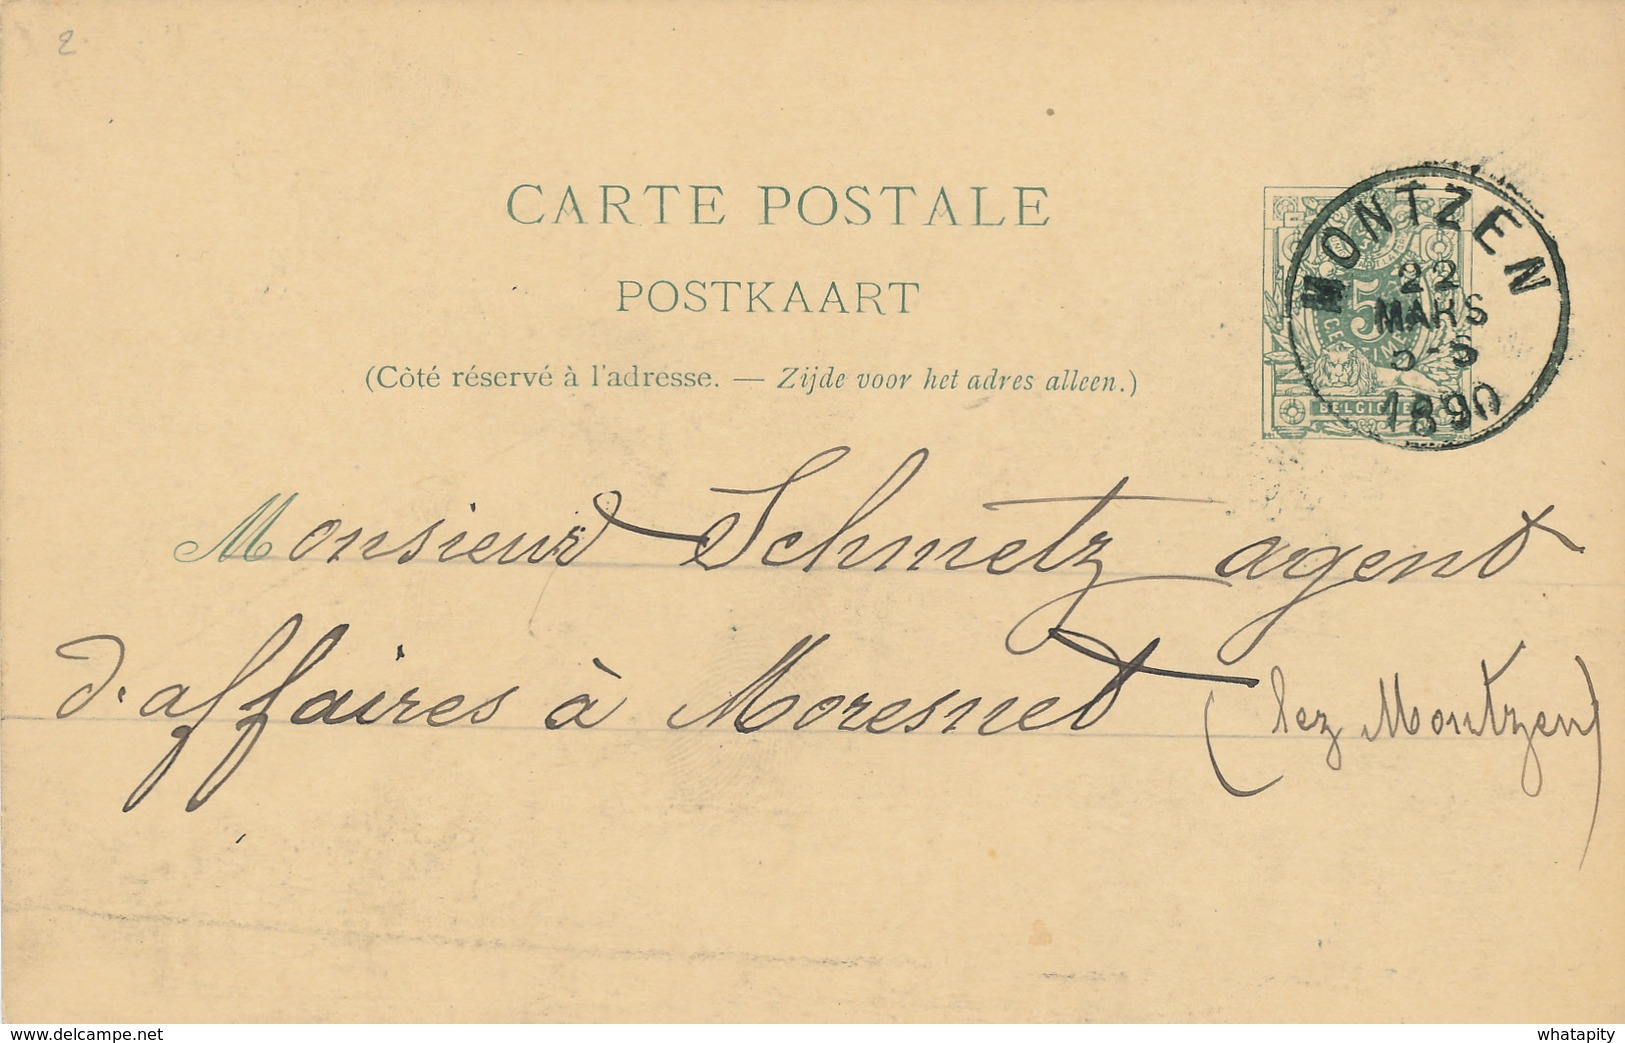 2
CARTE POSTALE
POSTKAART
(Côté réservé à l'adresse. — Zijde voor het adres alleen.)
MONTZEN
22
MARS
1890
5
BELGIQUE
Monsieur Schmetz agent
d'affaires à Moresnet (lez Montzen)
www.delcampe.net
whatapity